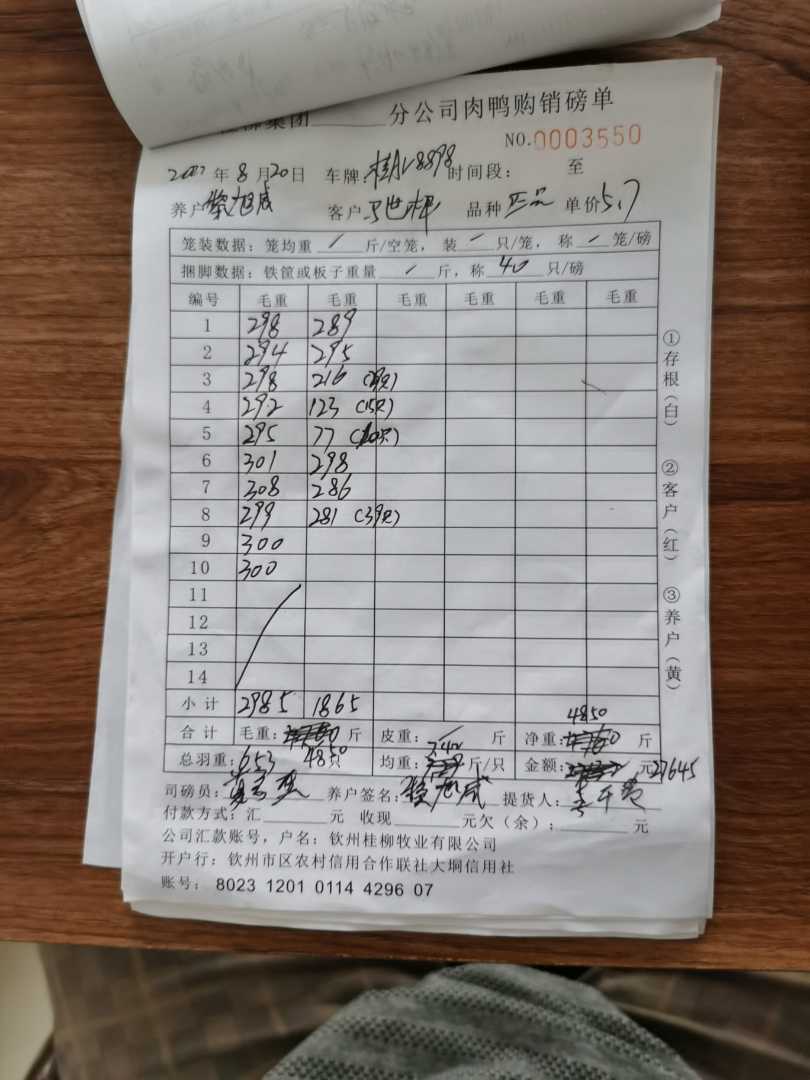 集团______分公司肉鸭购销磅单
NO.0003550
年8月20日 车牌: 8898 时间段: 至
养户 旭成 客户 品种 正品 单价5.7
笼装数据: 笼均重 / 斤/空笼, 装 / 只/笼, 称 / 笼/磅
捆脚数据: 铁筐或板子重量 / 斤, 称 40 只/磅
编号 毛重 毛重 毛重 毛重 毛重 毛重
1 298 289
2 294 295
3 298 216
4 292 123 (15只)
5 295 77
6 301 298
7 308 286
8 299 281 (39只)
9 300
10 300
11
12
13
14
小计 2985 1865
合计 毛重: 4850 斤 皮重: / 斤 净重: 4850 斤
总羽重: 653 只 均重: 斤/只 金额: 27645 元
司磅员: 养户签名: 旭成 提货人:
付款方式: 汇______元 收现______元欠(余): ______元
公司汇款账号, 户名: 钦州桂柳牧业有限公司
开户行: 钦州市区农村信用合作联社大垌信用社
账号: 8023 1201 0114 4296 07
①存根(白) ②客户(红) ③养户(黄)